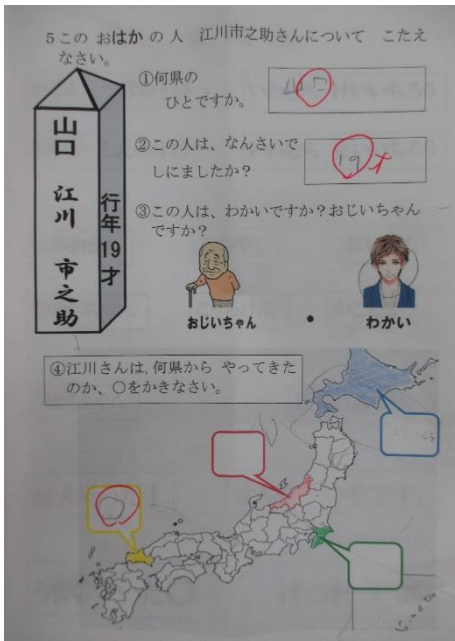 5この おはかの人 江川市之助さんについて こたえ
なさい。
山口 江川 市之助
行年19才
①何県の
ひとですか。
山口
②この人は、なんさいで
しにましたか?
19才
③この人は、わかいですか?おじいちゃん
ですか?
おじいちゃん ・ わかい
④江川さんは、何県から やってきた
のか、○をかきなさい。